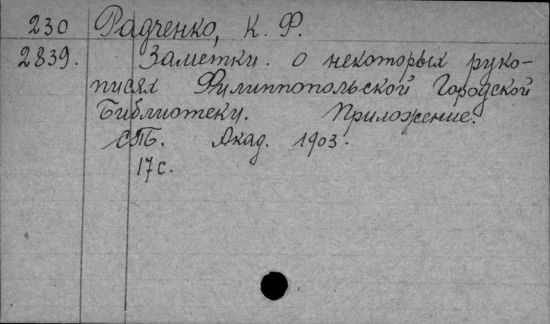 230 Радченко, К. Ф.
2839. Заметки. о некоторых руко-
писях Филиппопольской Городской
Библиотеку. Приложение.
СПБ. Акад. 1903.
17 с.